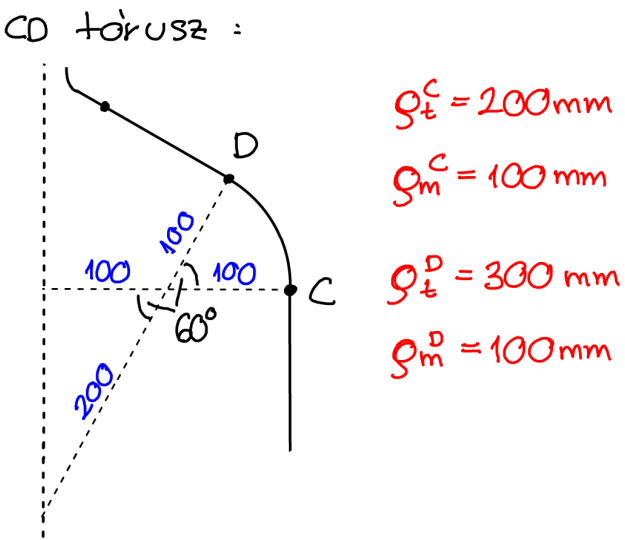 CD tórusz :
D
100
100
100
C
60°
200
ρₜᶜ = 200mm
ρₘᶜ = 100mm
ρₜᴰ = 300 mm
ρₘᴰ = 100mm